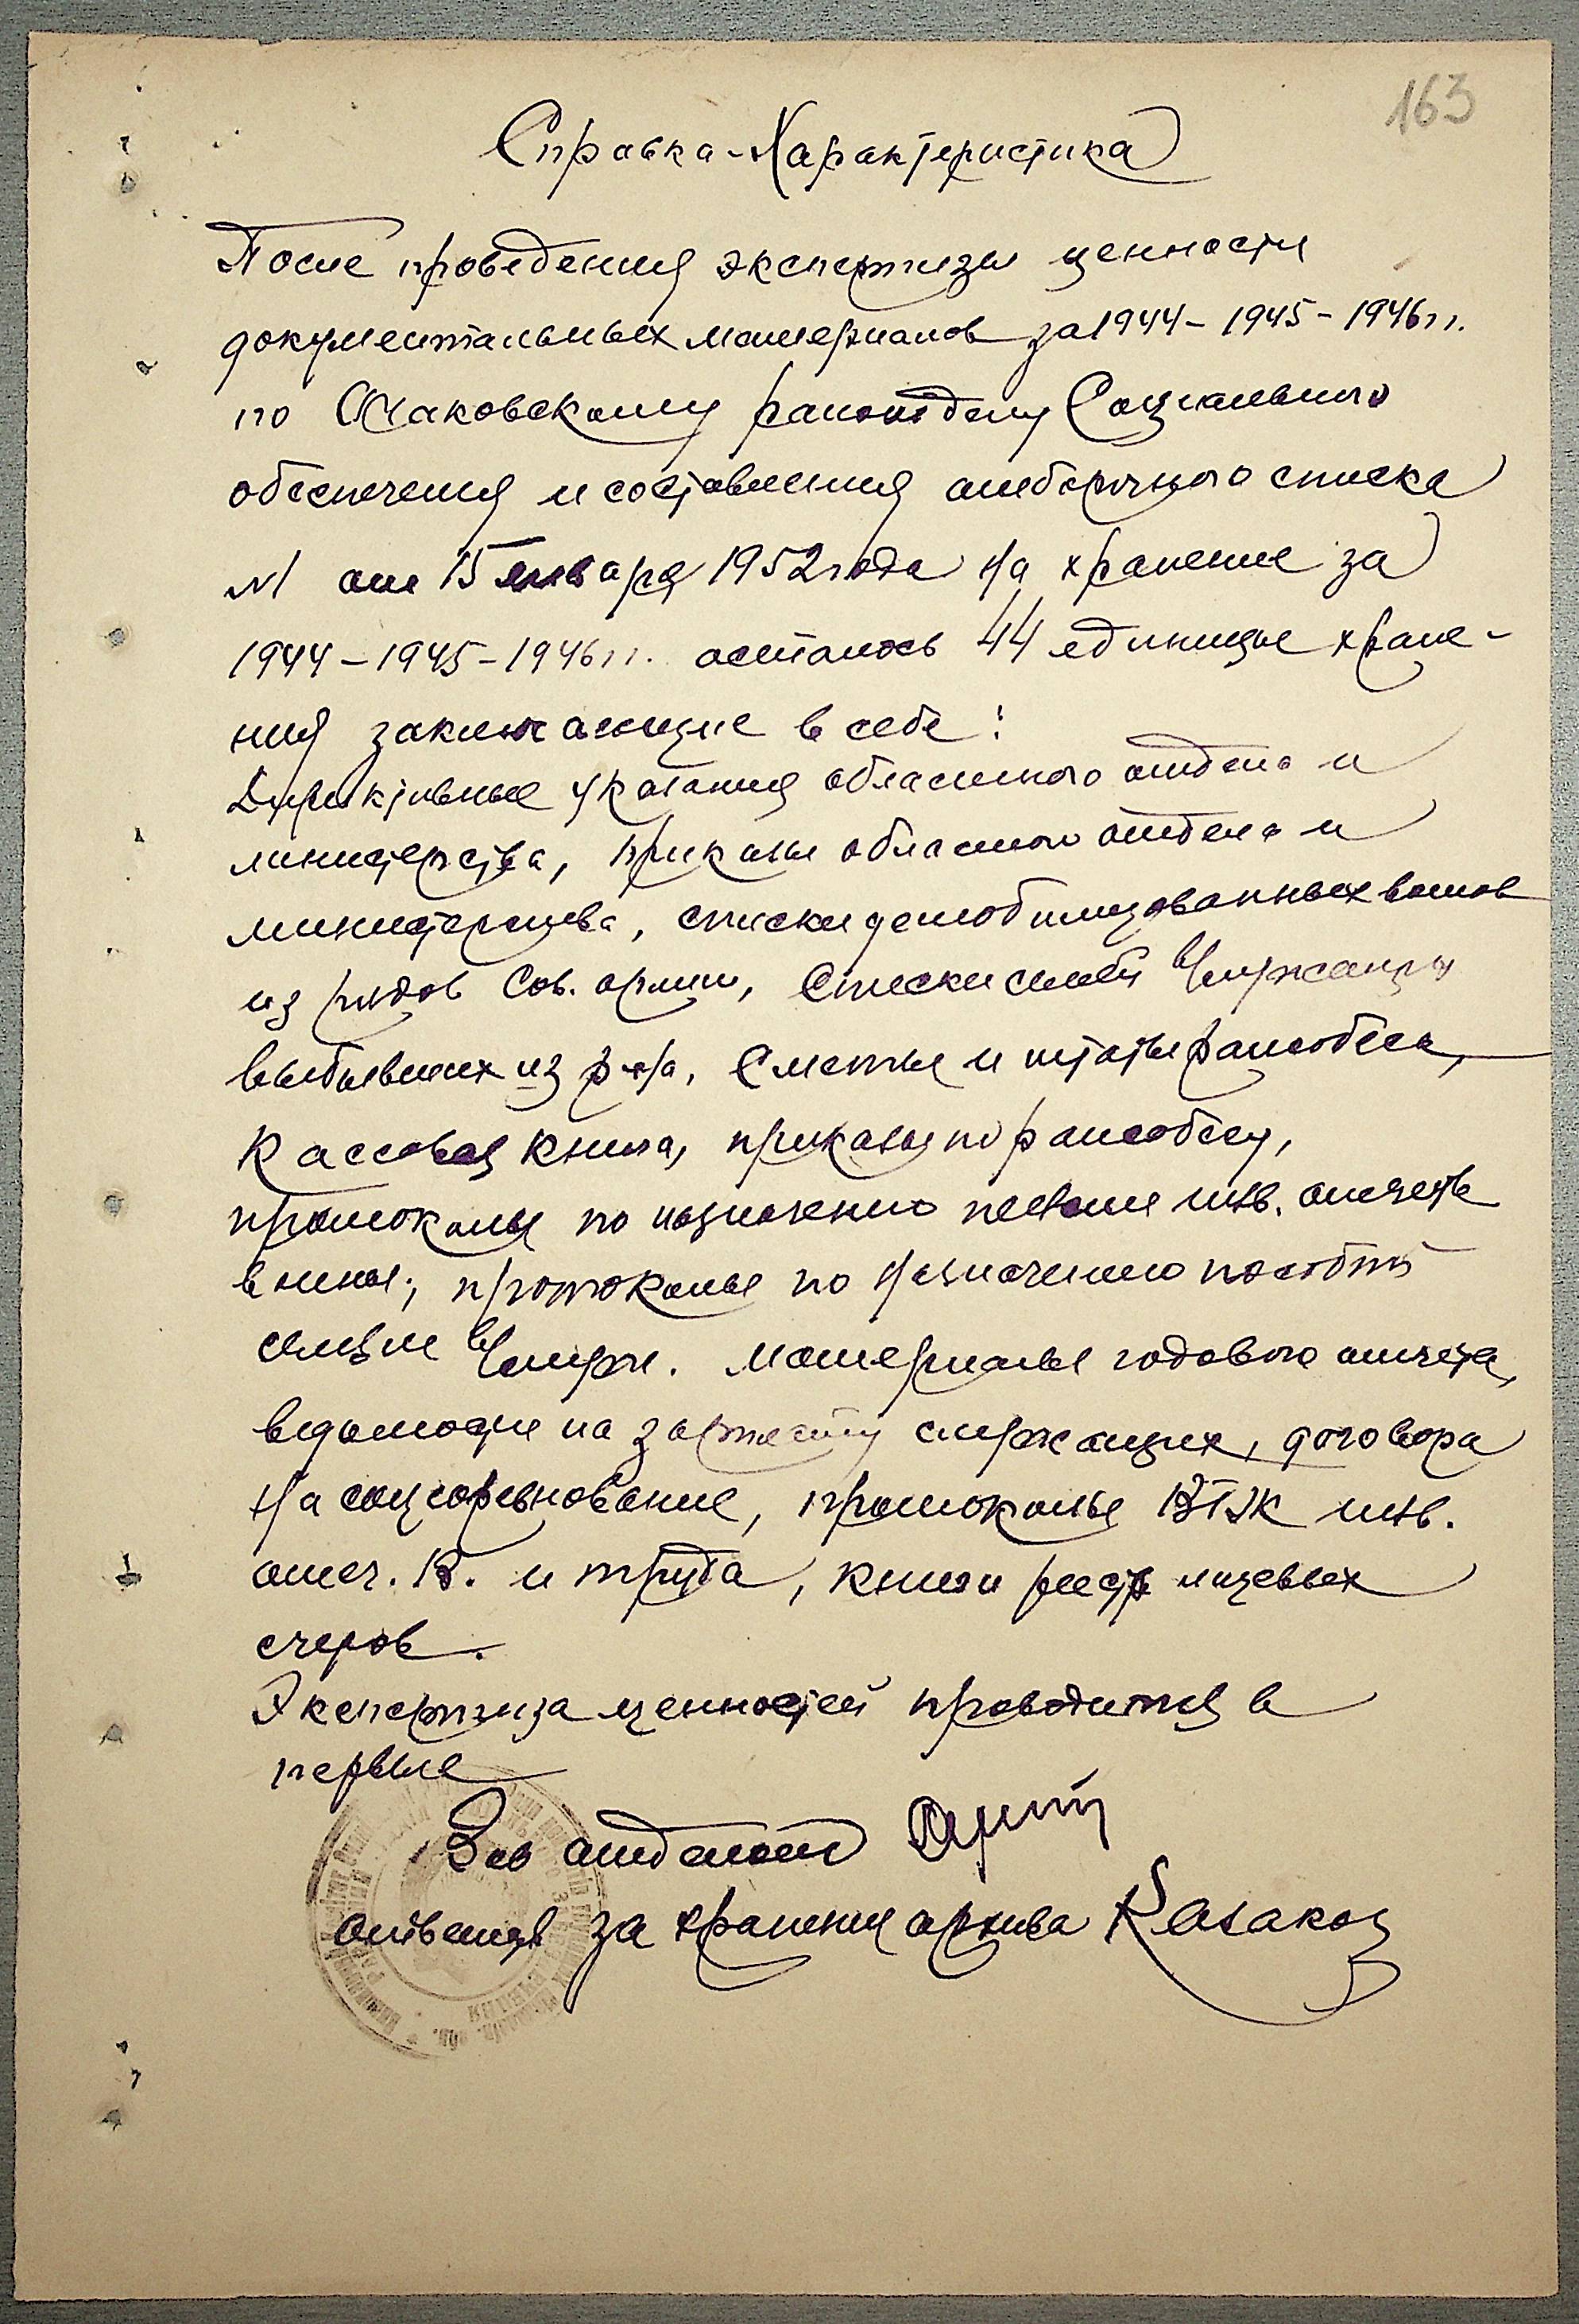 163
Справка-Характеристика
После проведения экспертизы ценности
документальных материалов за 1944-1945-1946 гг.
по Очаковскому райотделу Социального
обеспечения и составления отборочного списка
№ от 15 января 1952 года На хранение за
1944-1945-1946 гг. осталось 44 единицы хране-
ния заключающие в себе:
Директивные указания областного отдела и
министерства, приказы областного отдела и
министерства, списки демобилизованных воинов
из рядов Сов. армии, Списки семей в/служащих
выбывших из р-на, Сметы и штаты райсобеса,
Кассовая книга, приказы по райсобесу,
протоколы по назначению пенсии инв. отечеств
войны; протоколы по Назначению пособий
семьям в/служ. Материалы годового отчета,
ведомости на зарплату служащих, договора
На соцсоревнование, протоколы ВТЭК инв.
отеч. В. и труда, книги реестр лицевых
счетов.
Экспертиза ценностей проводится в
первые
Зав отделом
ответств за хранения архива Казакоз